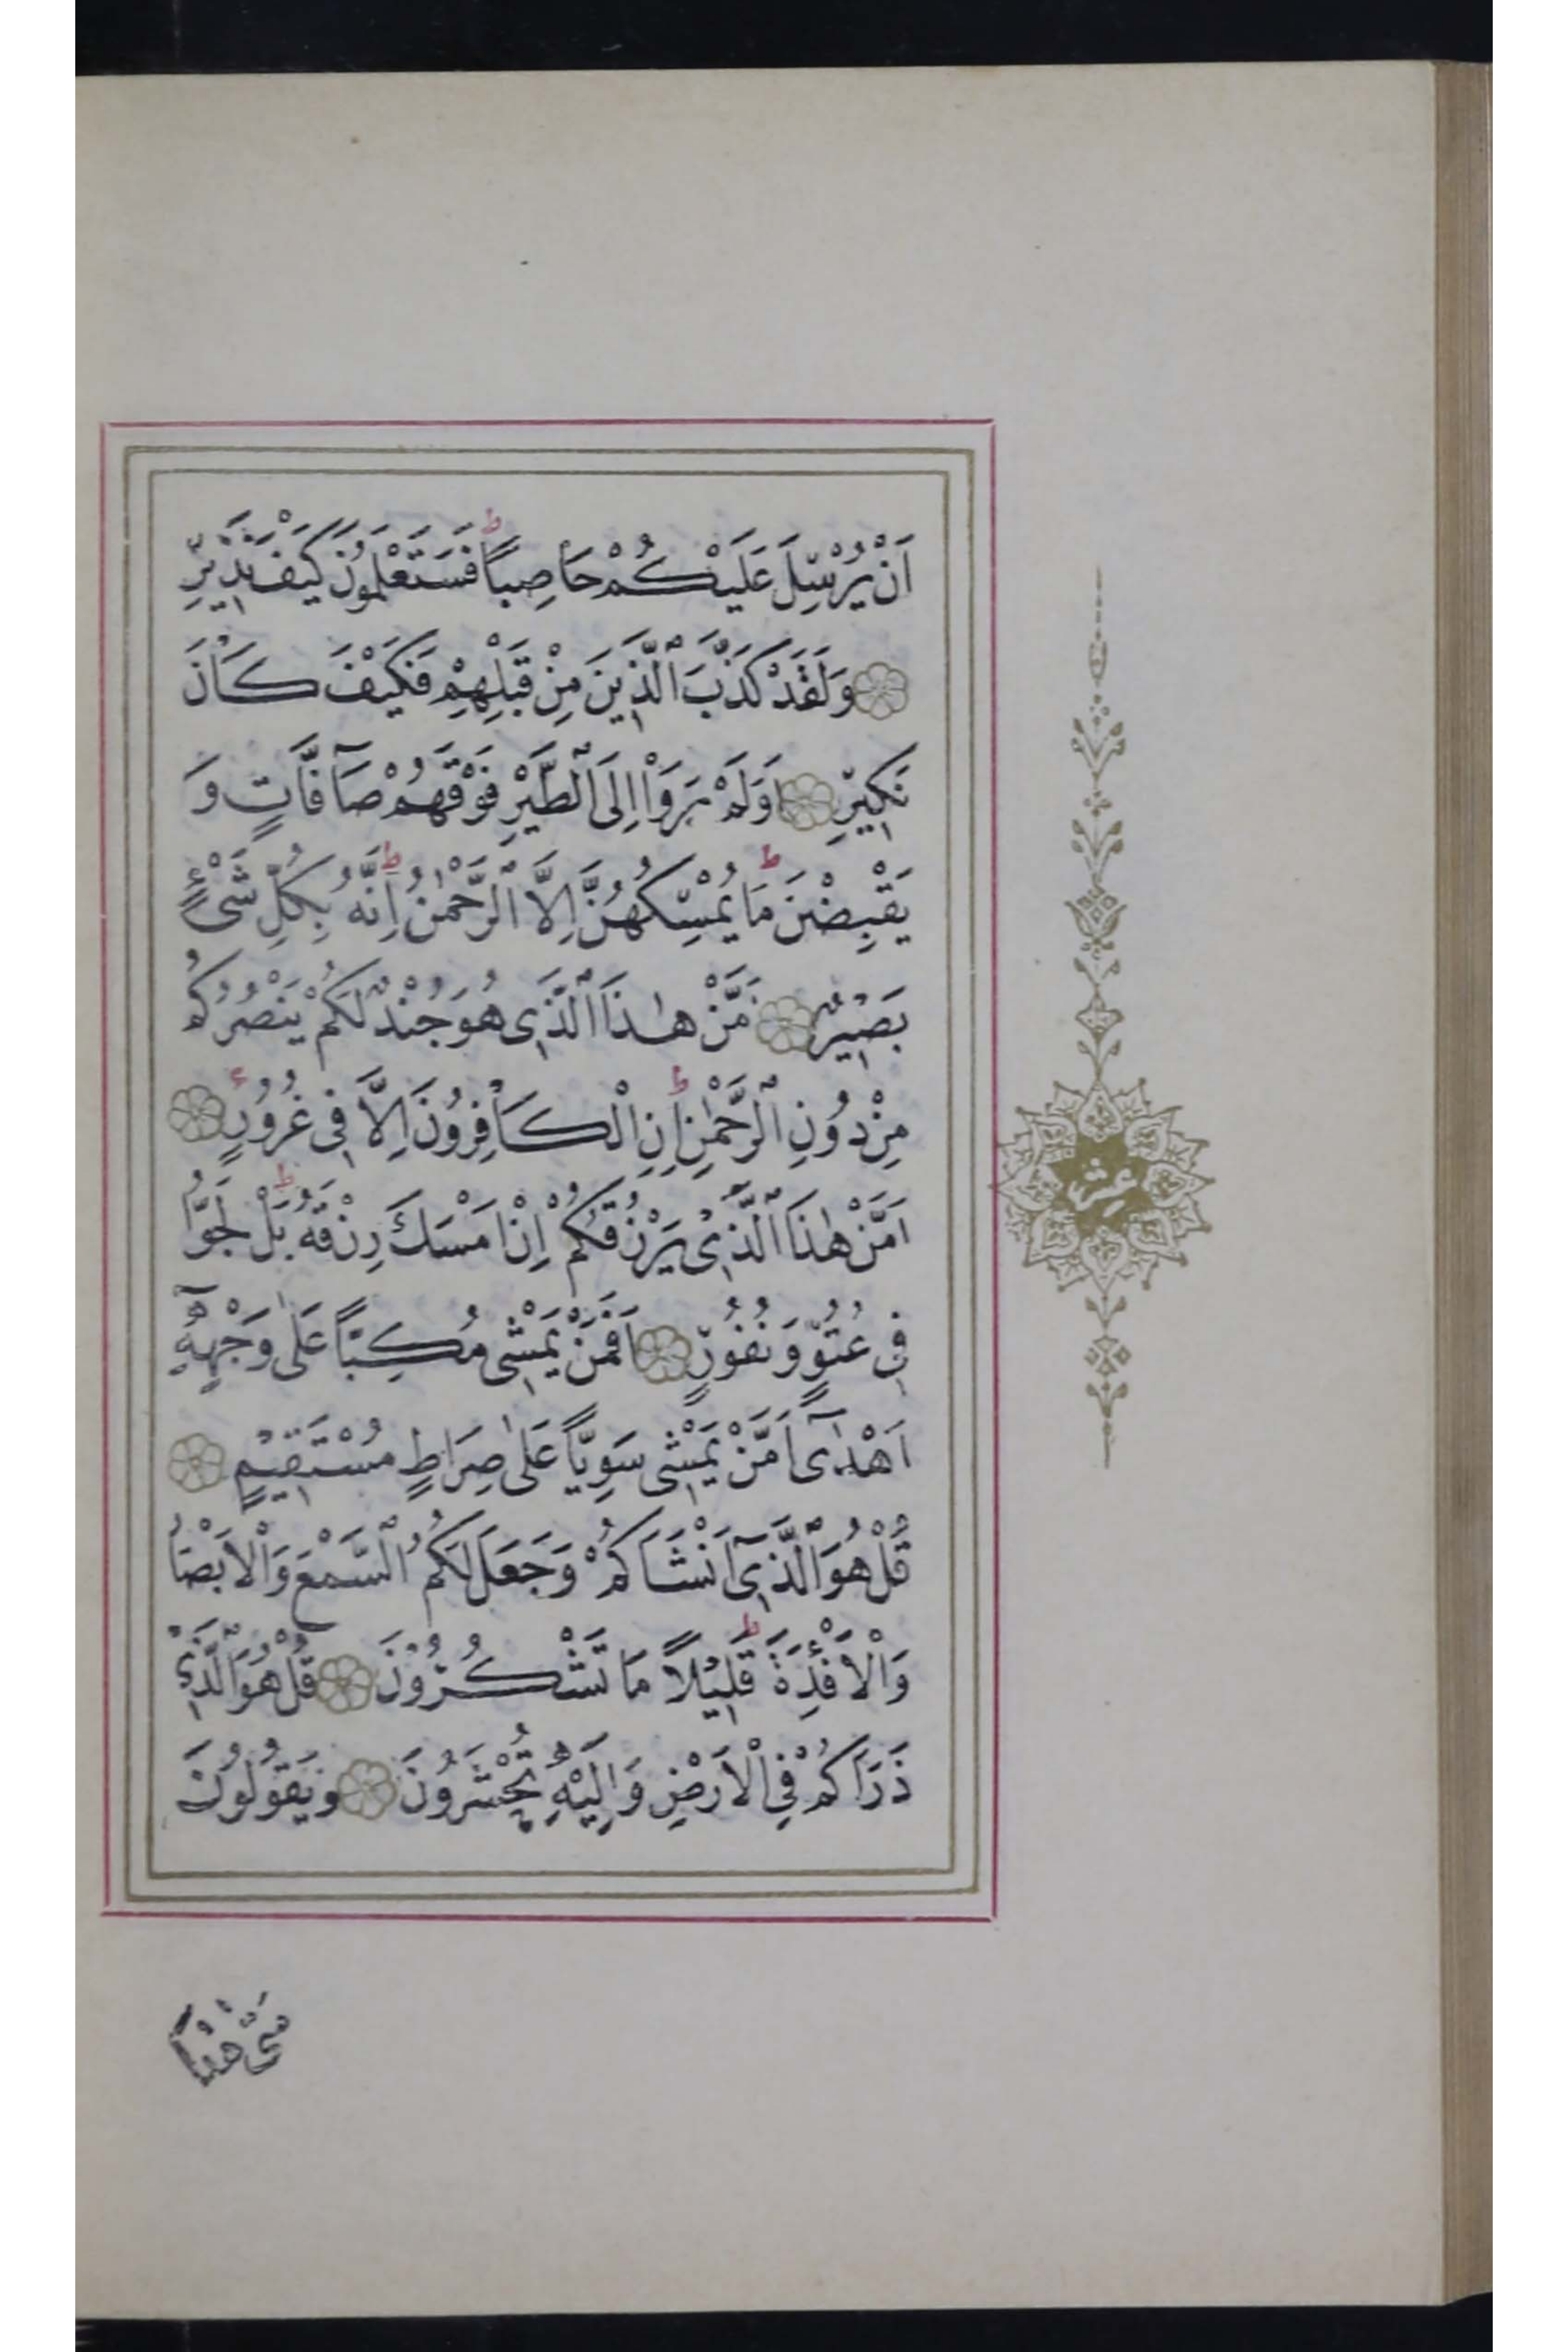 اَنْ يُرْسِلَ عَلَيْكُمْ حَاصِباً ط فَسَتَعْلَمُونَ كَيْفَ نَذِيرِ
وَلَقَدْ كَذَّبَ الَّذِينَ مِنْ قَبْلِهِمْ فَكَيْفَ كَانَ
نَكِيرِ اَوَلَمْ يَرَوْا اِلَى الطَّيْرِ فَوْقَهُمْ صَآفَّاتٍ وَ
يَقْبِضْنَ ط مَا يُمْسِكُهُنَّ اِلَّا الرَّحْمٰنُ ط اِنَّهُ بِكُلِّ شَىْءٍ
بَصِيرٌ مَّنْ هٰذَا الَّذِى هُوَ جُنْدٌ لَكُمْ يَنْصُرُكُمْ
مِنْ دُونِ الرَّحْمٰنِ ط اِنِ الْكَافِرُونَ اِلَّا فِى غُرُورٍ
اَمَّنْ هٰذَا الَّذِى يَرْزُقُكُمْ اِنْ اَمْسَكَ رِزْقَهُ ط بَلْ لَجُّوا
فِى عُتُوٍّ وَ نُفُورٍ اَفَمَنْ يَمْشِى مُكِبّاً عَلٰى وَجْهِهِٓ
اَهْدٰىٓ اَمَّنْ يَمْشِى سَوِيّاً عَلٰى صِرَاطٍ مُسْتَقِيمٍ
قُلْ هُوَ الَّذِىٓ اَنْشَاَكُمْ وَجَعَلَ لَكُمُ السَّمْعَ وَالْاَبْصَارَ
وَالْاَفْئِدَةَ ط قَلِيلاً مَا تَشْكُرُونَ قُلْ هُوَ الَّذِى
ذَرَاَكُمْ فِى الْاَرْضِ وَاِلَيْهِ تُحْشَرُونَ وَيَقُولُونَ
مَتٰى هٰذَا
عشر